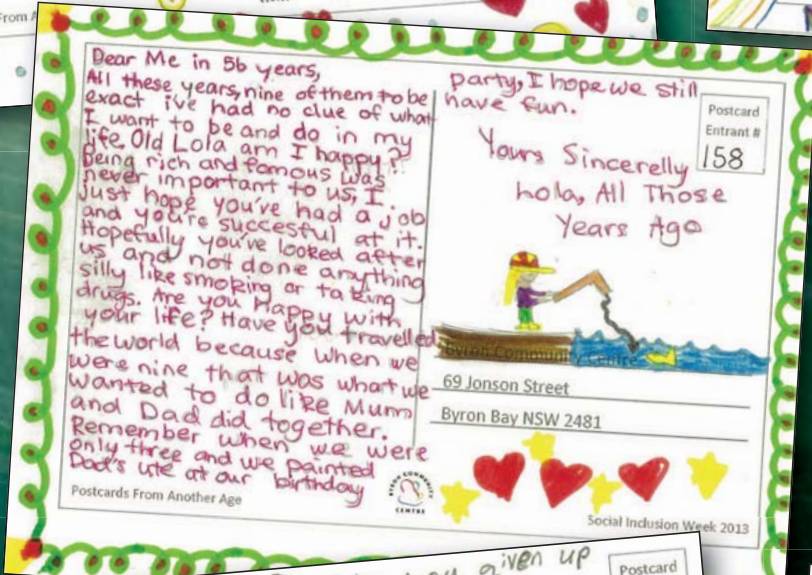 From A
Dear Me in 56 years,
All these years, nine of them to be
exact ive had no clue of what
I want to be and do in my
life. Old Lola am I happy?
Being rich and famous was
never important to us, I
just hope you've had a job
and you're succesful at it.
Hopefully you've looked after
us and not done anything
silly like smoking or taking
drugs. Are you Happy with
your life? Have you travelled
the world because when we
were nine that was what we
wanted to do like Mum
and Dad did together.
Remember when we were
only three and we painted
Dad's ute at our birthday
party, I hope we still
have fun.
Yours Sincerelly
Lola, All Those
Years Ago
Postcard
Entrant #
158
Byron Community Centre
69 Jonson Street
Byron Bay NSW 2481
Postcards From Another Age
BYRON COMMUNITY
CENTRE
Social Inclusion Week 2013
given up
Postcard